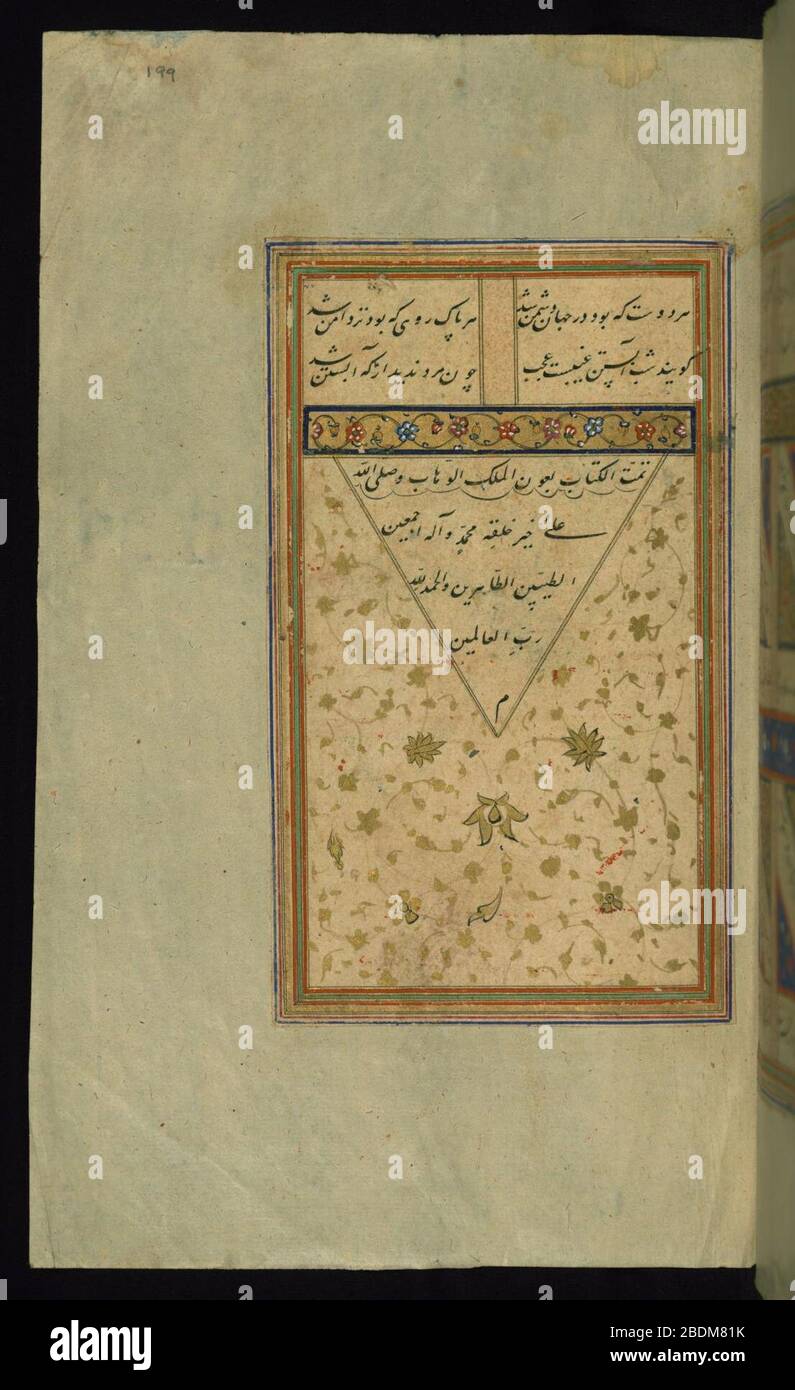 ۱۹۹
هر دوست که بود در جهان دشمن شد
هر پاک روی که بود تردامن شد
گویند شب آبستن غیبست عجب
چون مرد ندید از که آبستن شد
تمت الکتاب بعون الملک الوهاب وصلی الله
علی خیر خلقه محمد وآله اجمعین
الطیبین الطاهرین والحمد لله
رب العالمین
م
alamy
Image ID: 2BDM81K
www.alamy.com